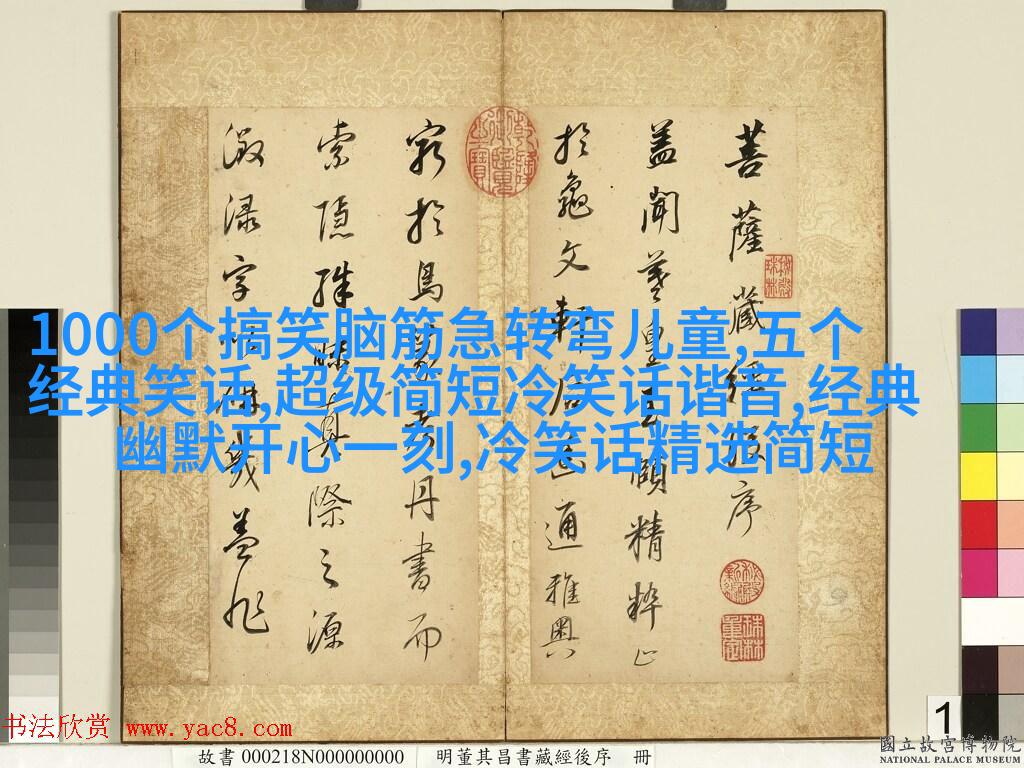 1000个搞笑脑筋急转弯儿童,五个
经典笑话,超级简短冷笑话谐音,经典
幽默开心一刻,冷笑话精选简短
菩薩藏經後序
蓋聞羲皇至賾精粹止
於龜文軒后幽通雅奧
窮於鳥篆考丹書而
索隱殊昧真際之源
徵淥字以研幾蓋非
书法欣赏 www.yac8.com
故書 000218N000000000 明董其昌書藏經後序 冊
1
國立故宮博物院
NATIONAL PALACE MUSEUM